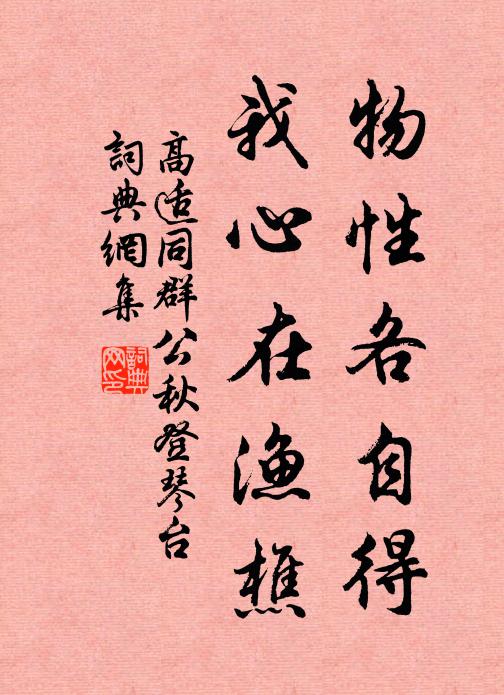 物性各自得
我心在漁樵
高适同群公秋登琴台
詞典網集
詞典网印